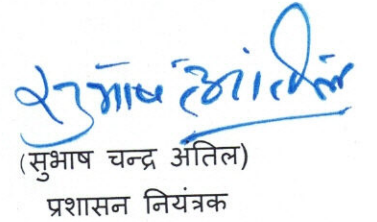 सुभाष अतिल
(सुभाष चन्द्र अतिल)
प्रशासन नियंत्रक